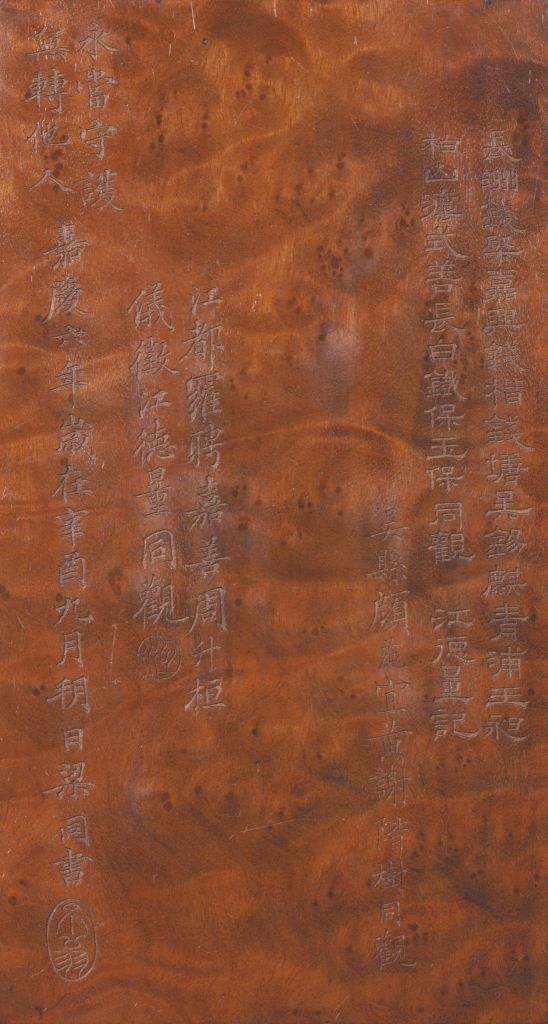 長洲蔣 嘉興錢楷錢塘吳錫麒青浦王昶
柏山瓊式善長白鐵保玉保同觀 江德量記
吳縣顧蒓宜黃謝階樹同觀
江都羅聘嘉善周升桓
儀徵江德量同觀
永當守護
無轉他人
嘉慶六年歲在辛酉九月朔日梁同書
不翁